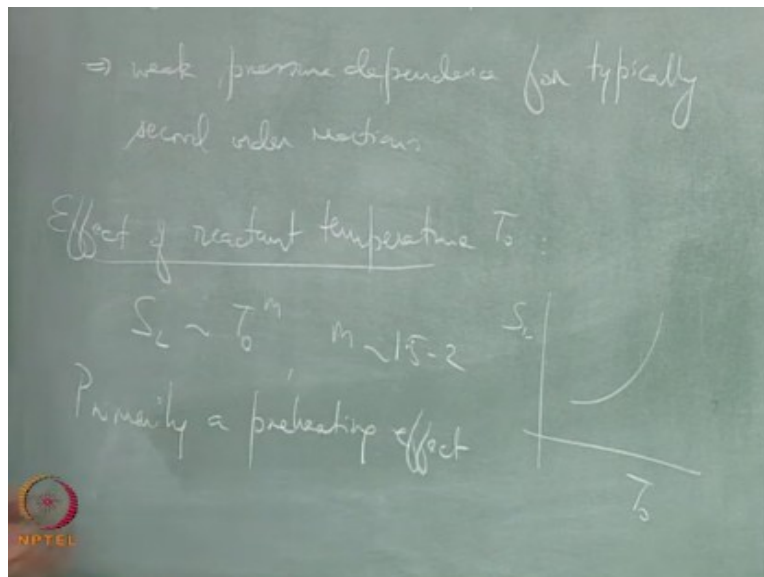 ⇒ weak pressure dependence for typically
second order reactions
Effect of reactant temperature T₀ :
S_L ~ T₀^m, m ~ 1.5-2
S_L
Primarily a preheating effect
T₀
NPTEL